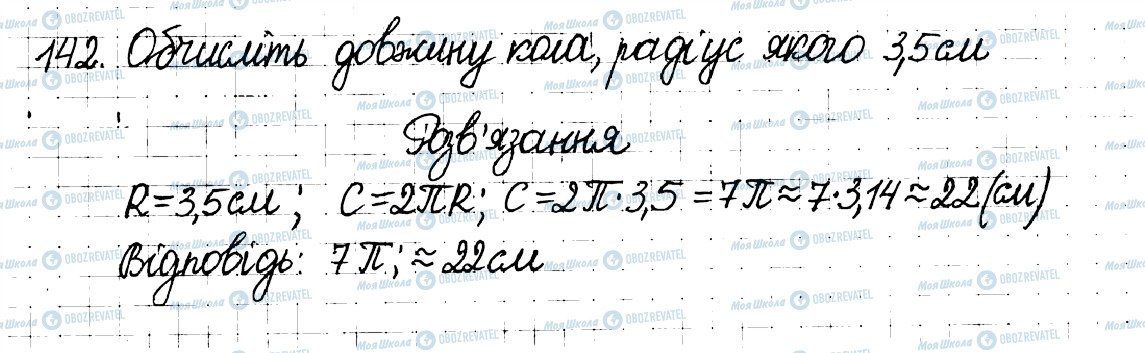 142. Обчисліть довжину кола, радіус якого 3,5 см
Розв'язання
R=3,5 см; C=2πR; C=2π·3,5=7π≈7·3,14≈22(см)
Відповідь: 7π; ≈22 см
МояШкола OBOZREVATEL